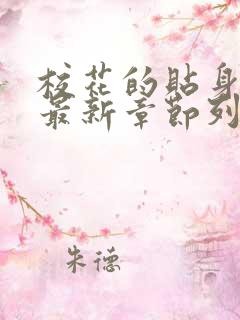 校花的貼身
最新章節列
朱德